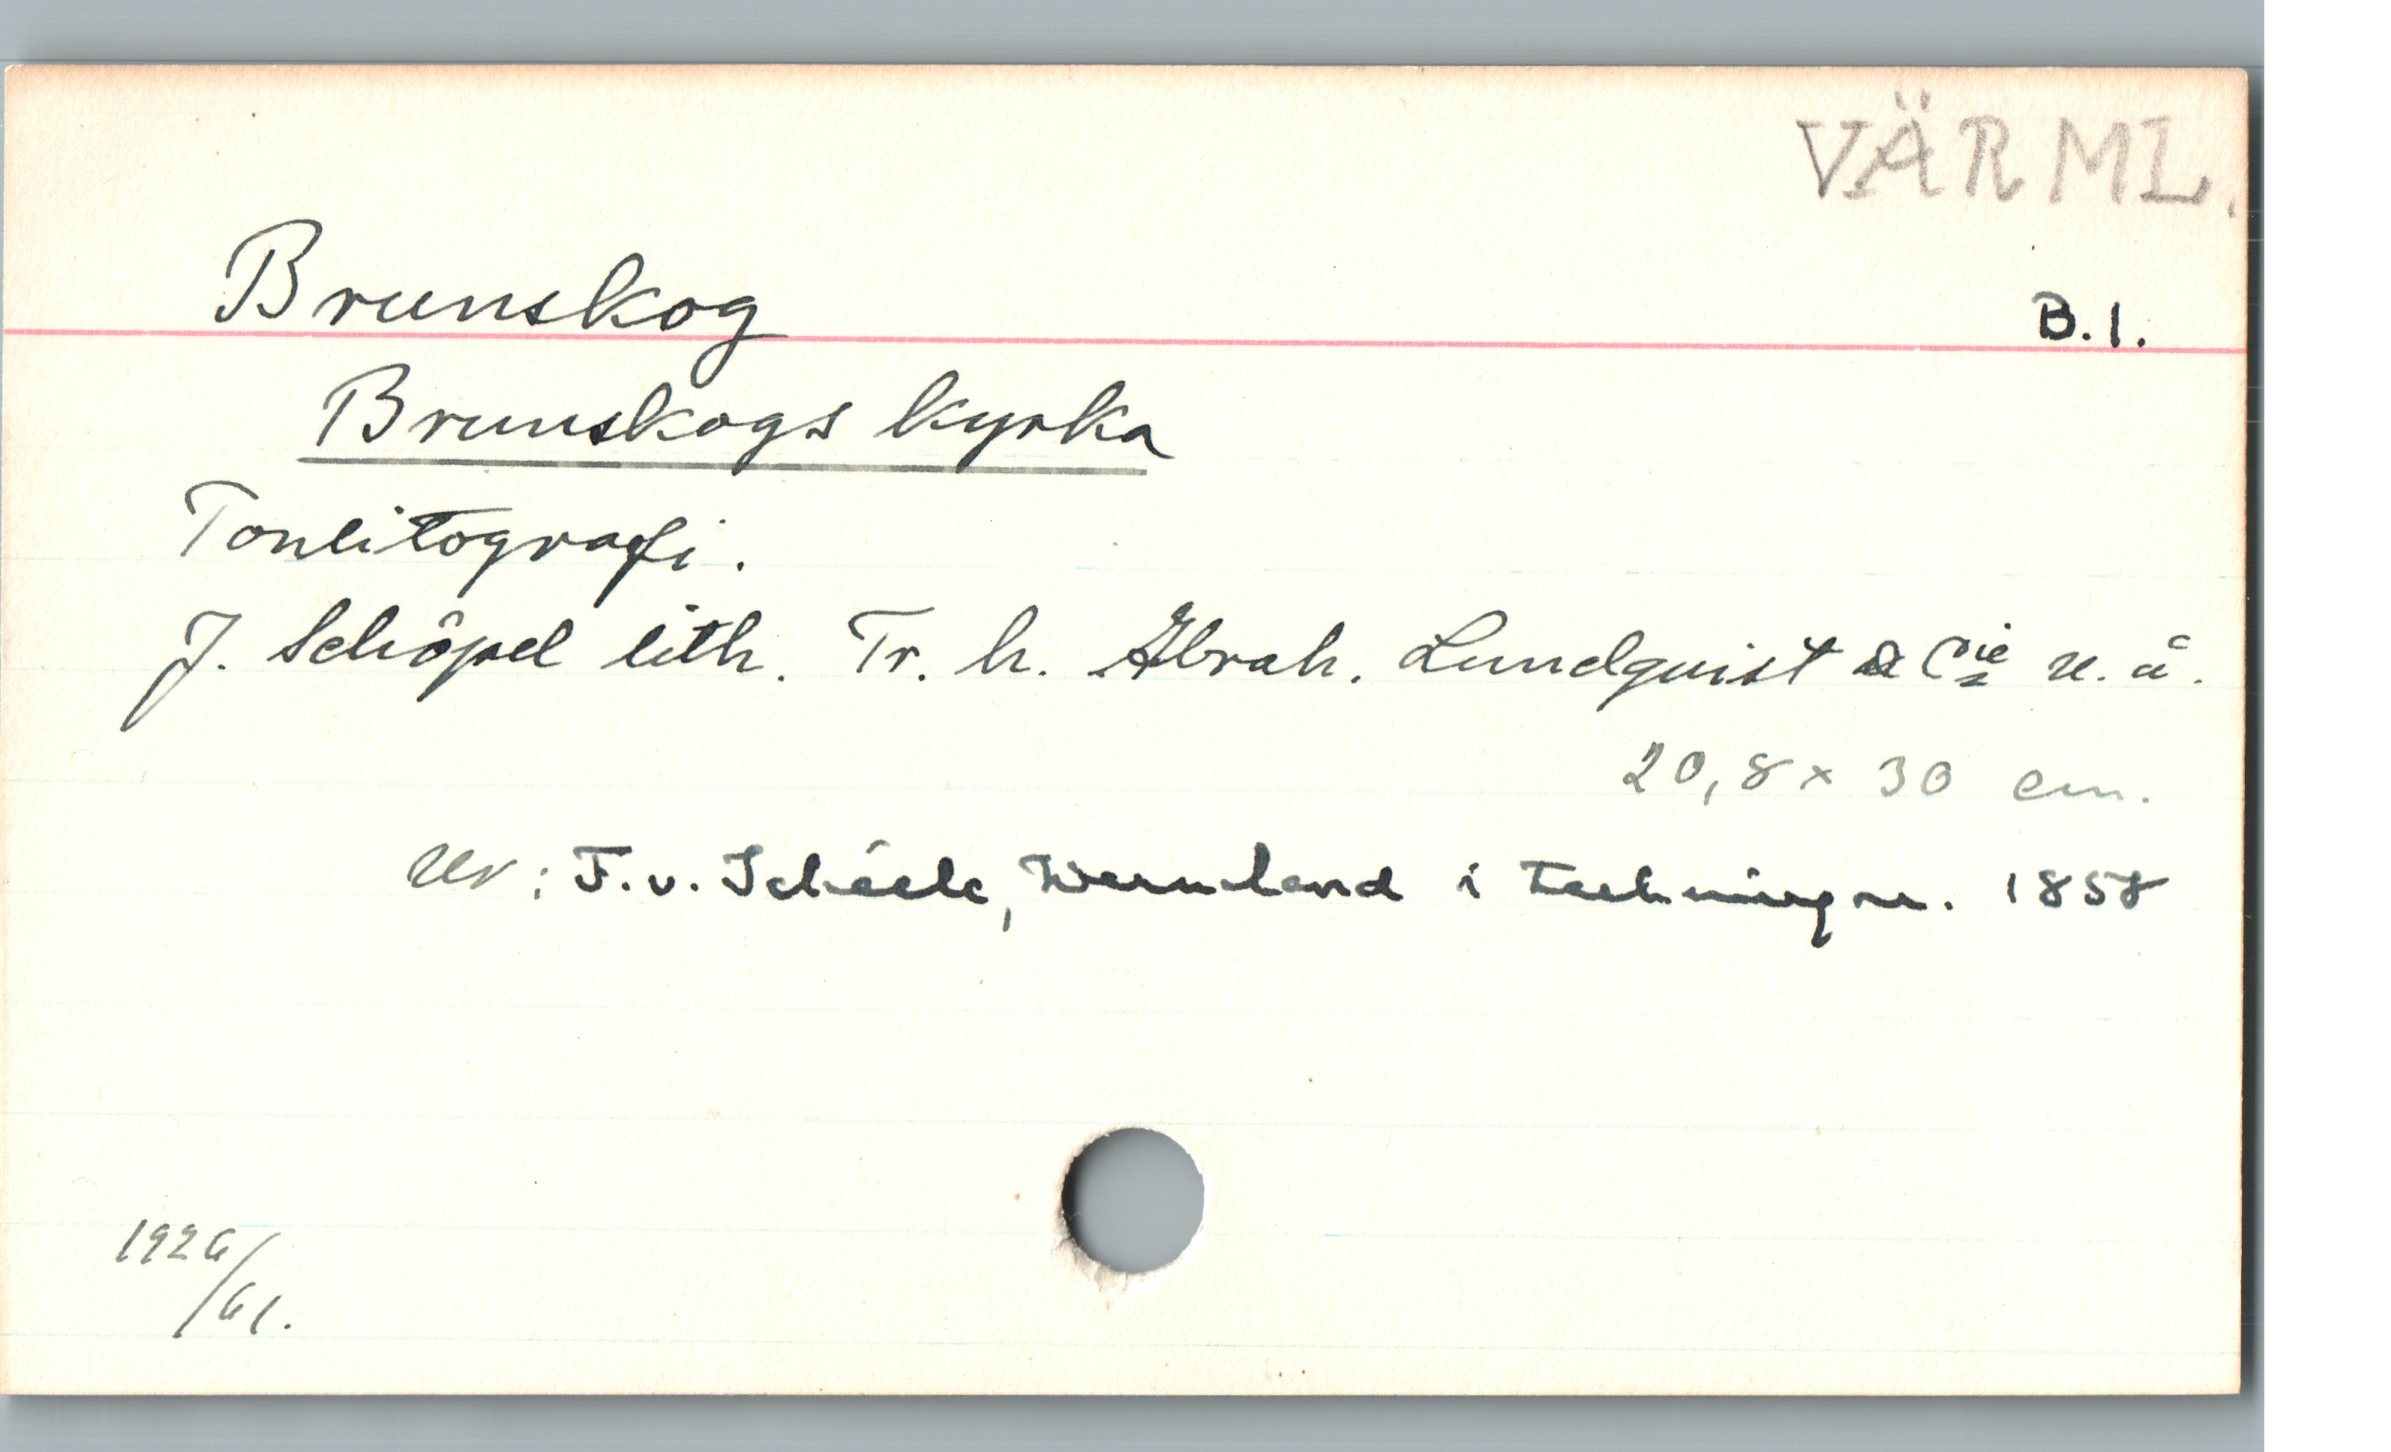 VÄRML.
Brunskog
B. 1.
Brunskogs kyrka
Tonlitografi.
J. Schöpel lith. Tr. h. Abrah. Lundquist & Cie u. å.
20,8 x 30 cm.
Ur: F. v. Schéele, Wermland i teckningar. 1858
1926/61.